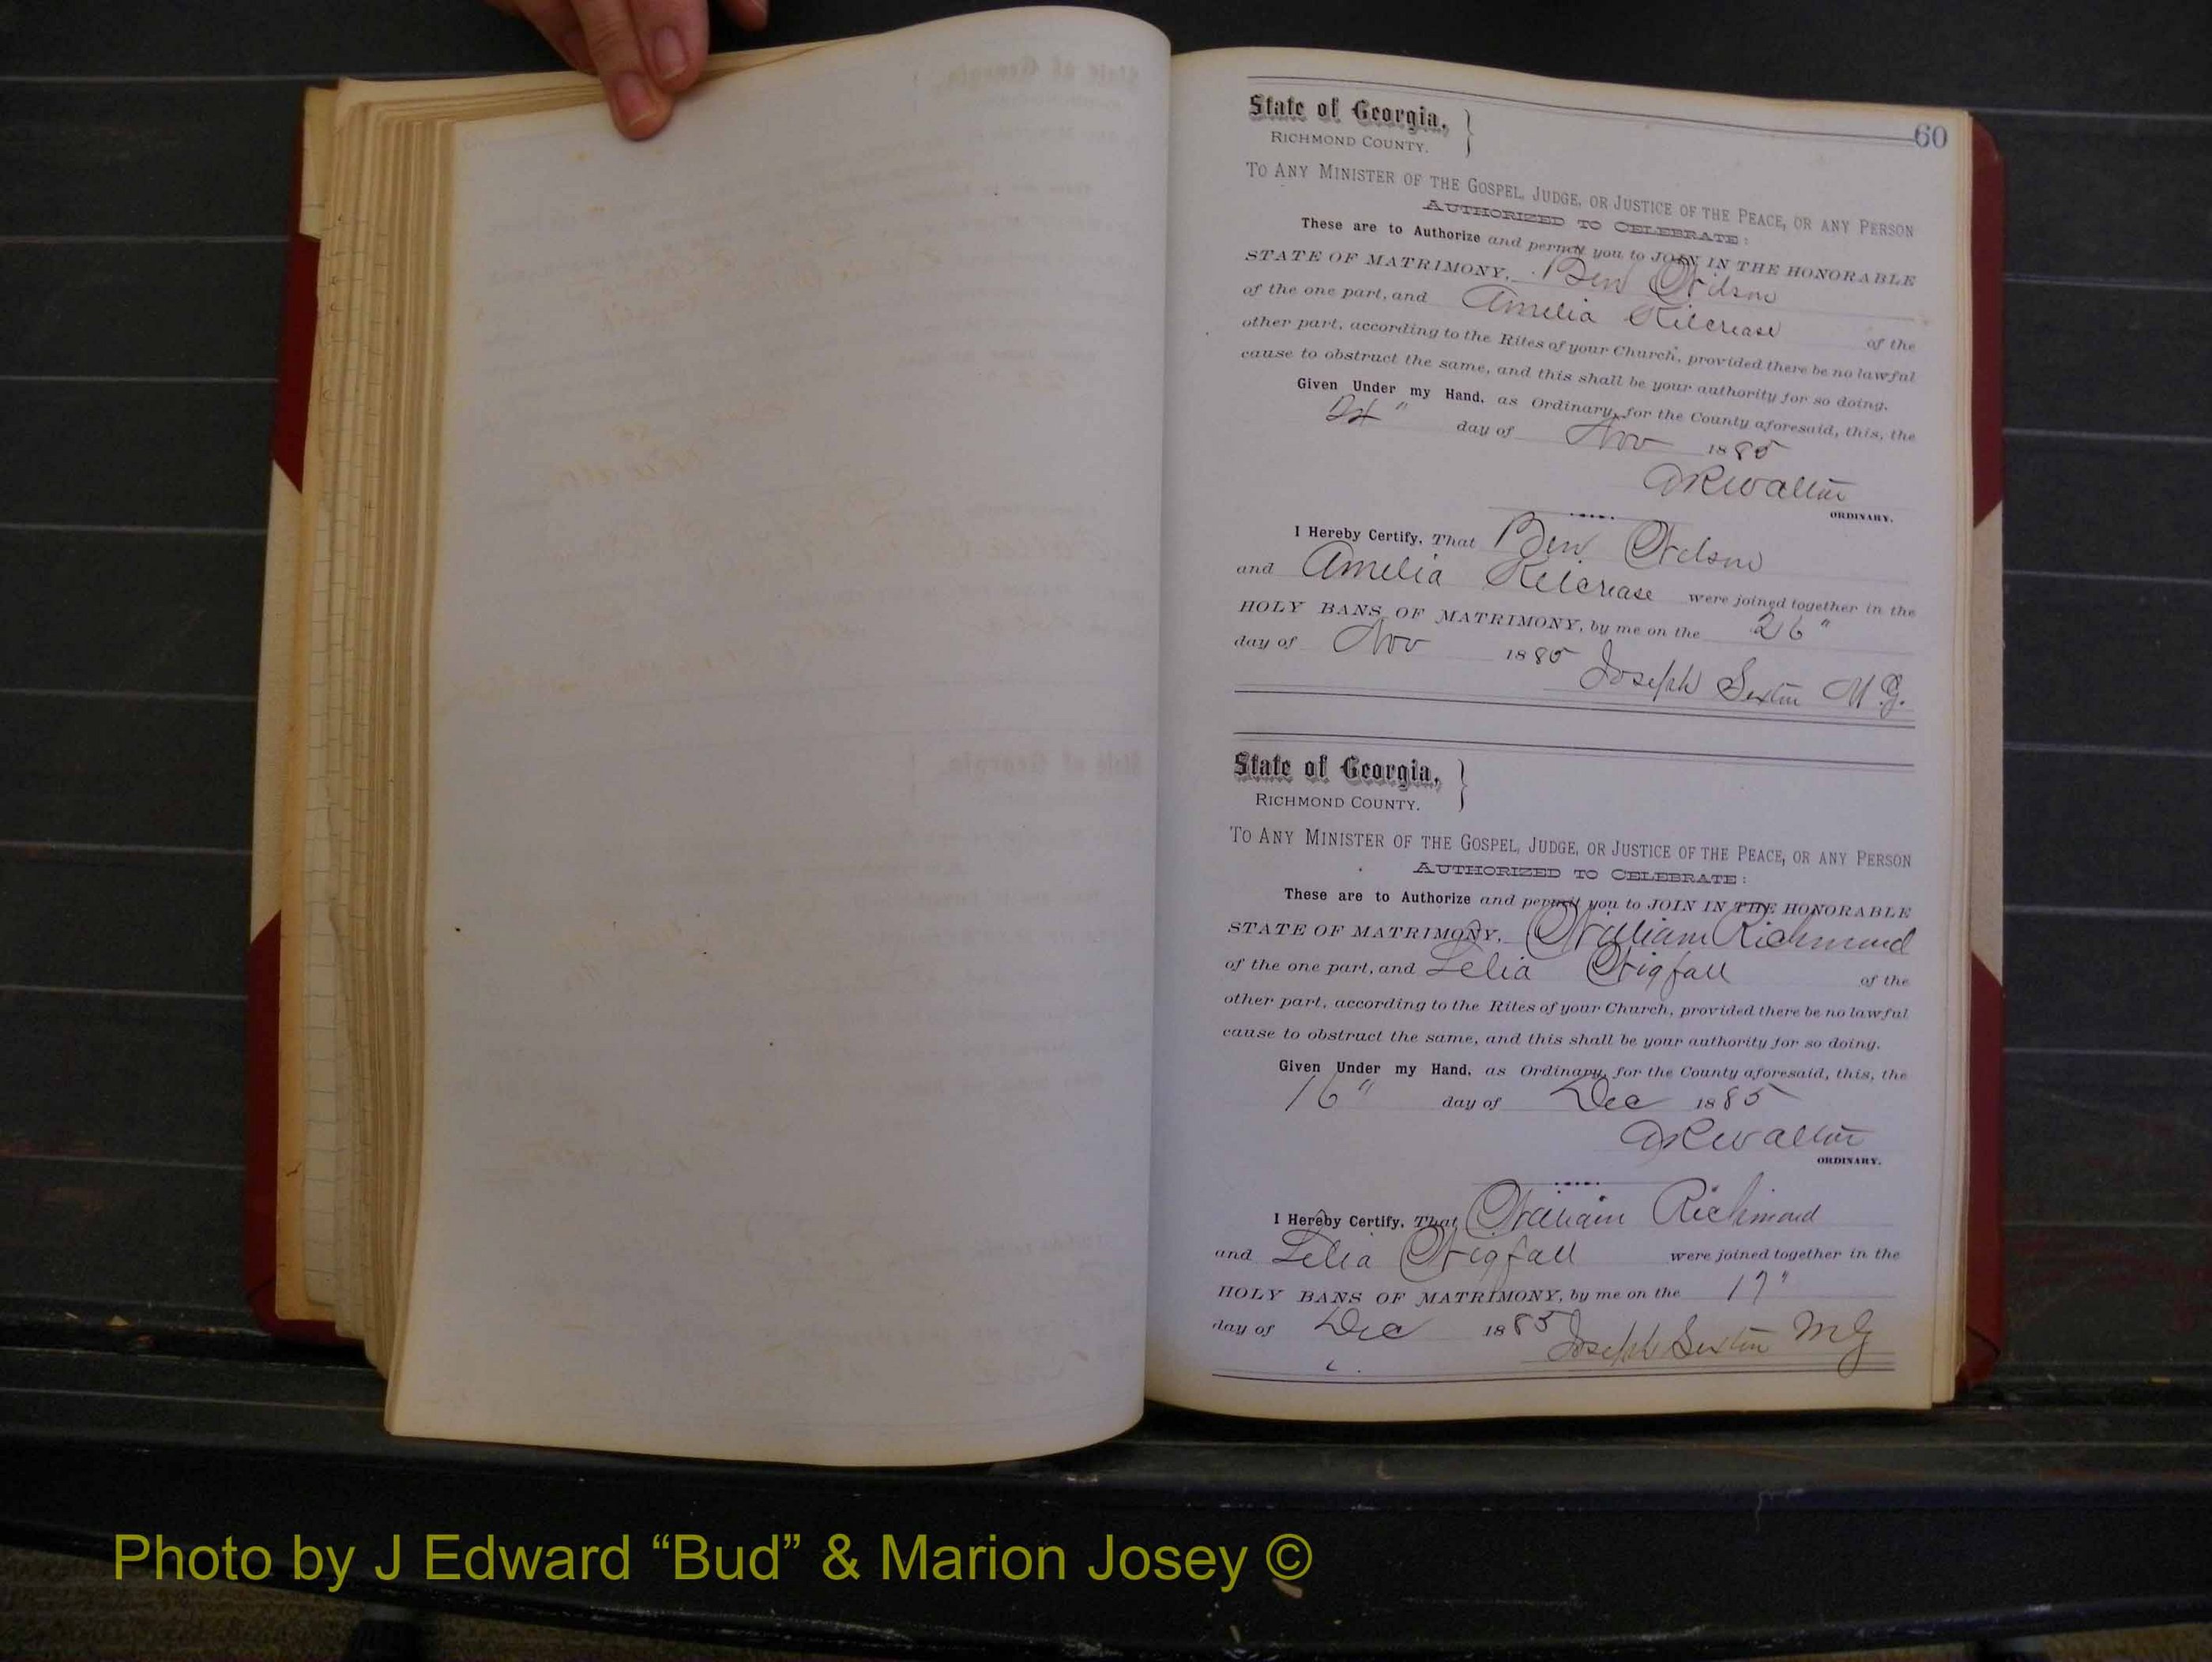 60
State of Georgia, }
RICHMOND COUNTY.
TO ANY MINISTER OF THE GOSPEL, JUDGE, OR JUSTICE OF THE PEACE, OR ANY PERSON
AUTHORIZED TO CELEBRATE:
These are to Authorize and permit you to JOIN IN THE HONORABLE
STATE OF MATRIMONY, Ben Wilson
of the one part, and Amelia Kilcrease of the
other part, according to the Rites of your Church, provided there be no lawful
cause to obstruct the same, and this shall be your authority for so doing.
Given Under my Hand, as Ordinary, for the County aforesaid, this, the
24" day of Nov 1885
DR Walton
ORDINARY.
I Hereby Certify, That Ben Wilson
and Amelia Kilcrease were joined together in the
HOLY BANS OF MATRIMONY, by me on the 26"
day of Nov 1885 Joseph Sexton M.G.
State of Georgia, }
RICHMOND COUNTY.
TO ANY MINISTER OF THE GOSPEL, JUDGE, OR JUSTICE OF THE PEACE, OR ANY PERSON
AUTHORIZED TO CELEBRATE:
These are to Authorize and permit you to JOIN IN THE HONORABLE
STATE OF MATRIMONY, William Richmond
of the one part, and Lelia Wigfall of the
other part, according to the Rites of your Church, provided there be no lawful
cause to obstruct the same, and this shall be your authority for so doing.
Given Under my Hand, as Ordinary, for the County aforesaid, this, the
16" day of Dec 1885
DR Walton
ORDINARY.
I Hereby Certify, That William Richmond
and Lelia Wigfall were joined together in the
HOLY BANS OF MATRIMONY, by me on the 17"
day of Dec 1885 Joseph Sexton MG
Photo by J Edward “Bud” & Marion Josey ©